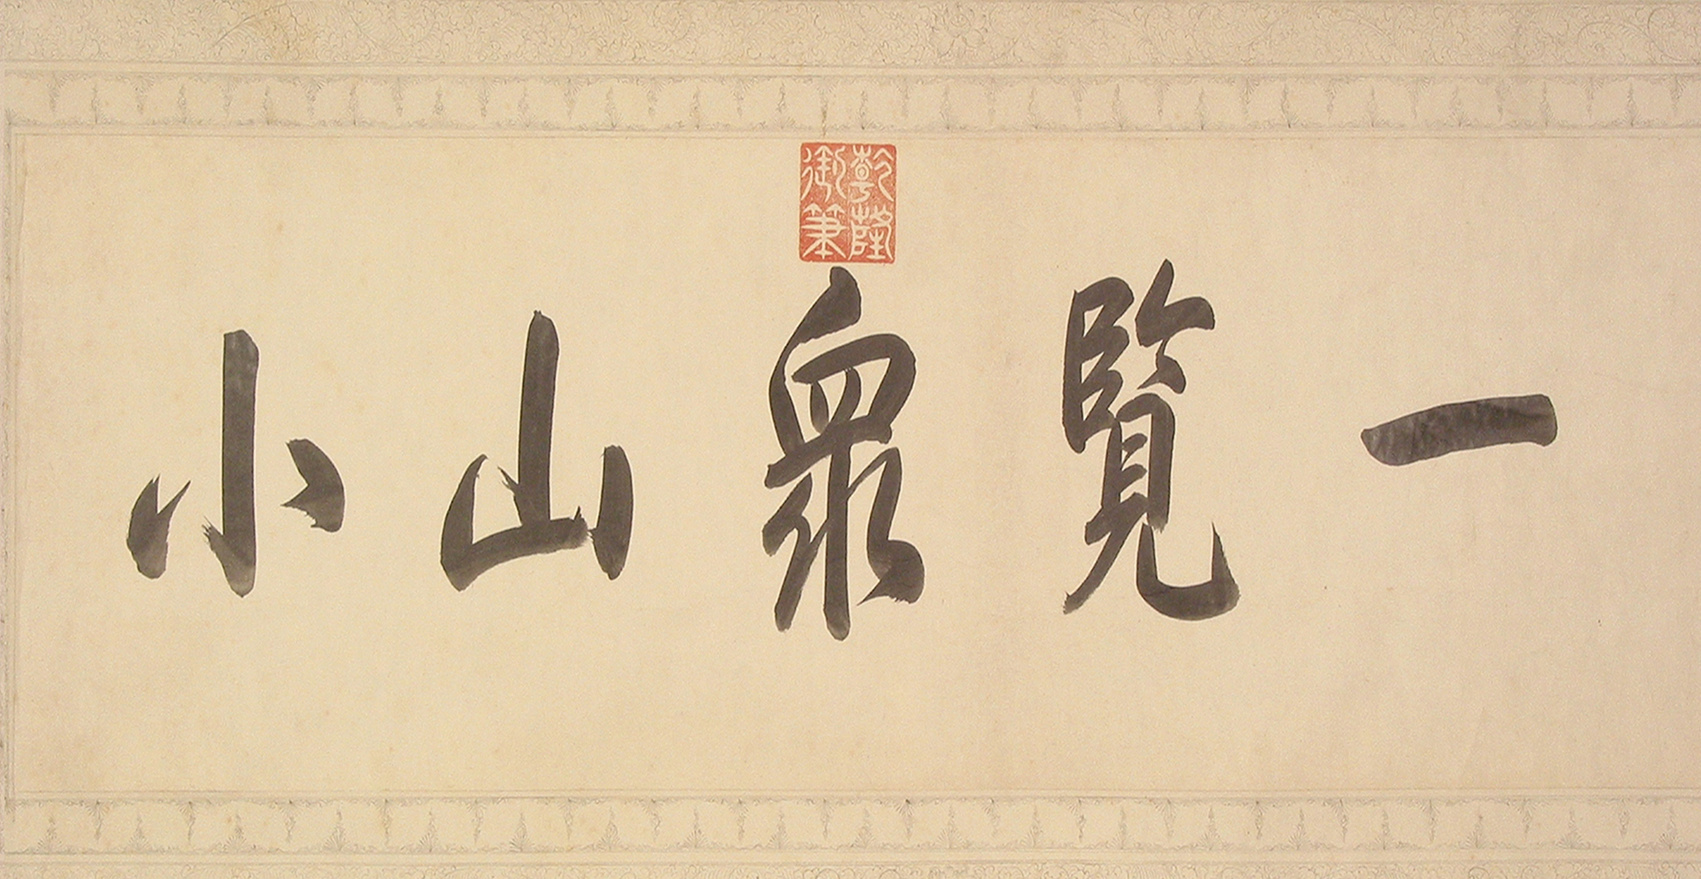 一覽衆山小
乾隆
御筆